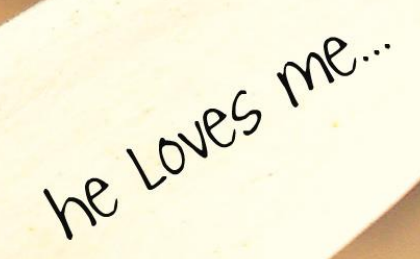 he Loves me...